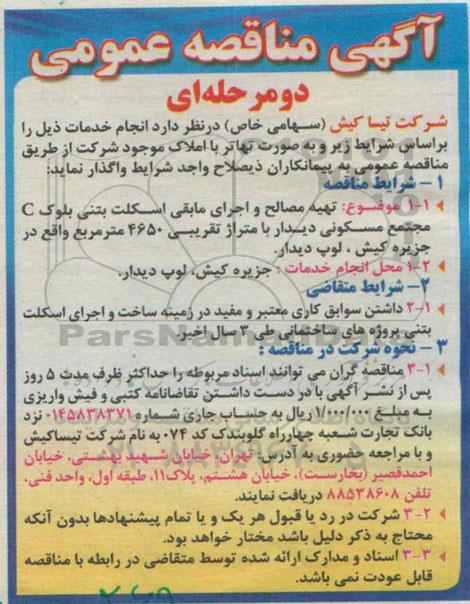 آگهی مناقصه عمومی
دو مرحله‌ای
شرکت تیسا کیش (سهامی خاص) درنظر دارد انجام خدمات ذیل را
براساس شرایط زیر و به صورت تهاتر با املاک موجود شرکت از طریق
مناقصه عمومی به پیمانکاران ذیصلاح واجد شرایط واگذار نماید:
۱- شرایط مناقصه
۱-۱ موضوع: تهیه مصالح و اجرای مابقی اسکلت بتنی بلوک C
مجتمع مسکونی دیدار با متراژ تقریبی ۴۶۵۰ مترمربع واقع در
جزیره کیش ، لوپ دیدار.
۱-۲ محل انجام خدمات : جزیره کیش، لوپ دیدار.
۲- شرایط متقاضی
۲-۱ داشتن سوابق کاری معتبر و مفید در زمینه ساخت و اجرای اسکلت
بتنی پروژه های ساختمانی طی ۳ سال اخیر.
۳- نحوه شرکت در مناقصه :
۳-۱ مناقصه گران می توانند اسناد مربوطه را حداکثر ظرف مدت ۵ روز
پس از نشر آگهی با در دست داشتن تقاضانامه کتبی و فیش واریزی
به مبلغ ۱/۰۰۰/۰۰۰ ریال به حساب جاری شماره ۰۱۴۵۸۳۸۳۷۱ نزد
بانک تجارت شعبه چهارراه گلوبندک کد ۰۷۴ به نام شرکت تیساکیش
و با مراجعه حضوری به آدرس: تهران خیابان شهید بهشتی، خیابان
احمدقصیر (بخارست)، خیابان هشتم، پلاک۱۱، طبقه اول، واحد فنی،
تلفن ۸۸۵۳۸۶۰۸ دریافت نمایند.
۳-۲ شرکت در رد یا قبول هر یک و یا تمام پیشنهادها بدون آنکه
محتاج به ذکر دلیل باشد مختار خواهد بود.
۳-۳ اسناد و مدارک ارائه شده توسط متقاضی در رابطه با مناقصه
قابل عودت نمی باشد.